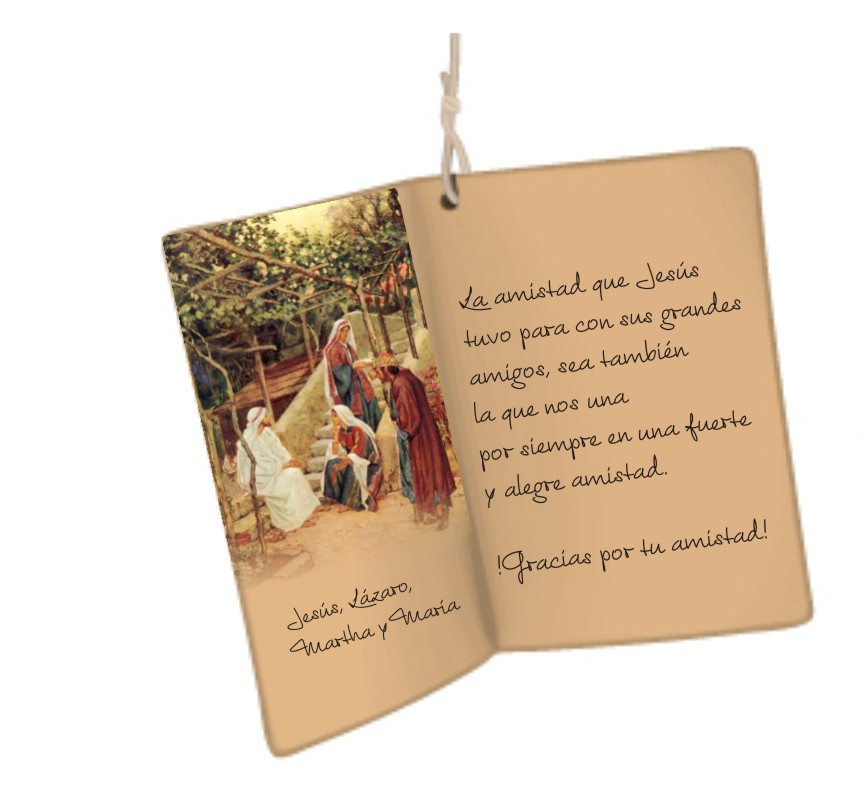 Jesús, Lázaro,
Martha y María
La amistad que Jesús
tuvo para con sus grandes
amigos, sea también
la que nos una
por siempre en una fuerte
y alegre amistad.
!Gracias por tu amistad!